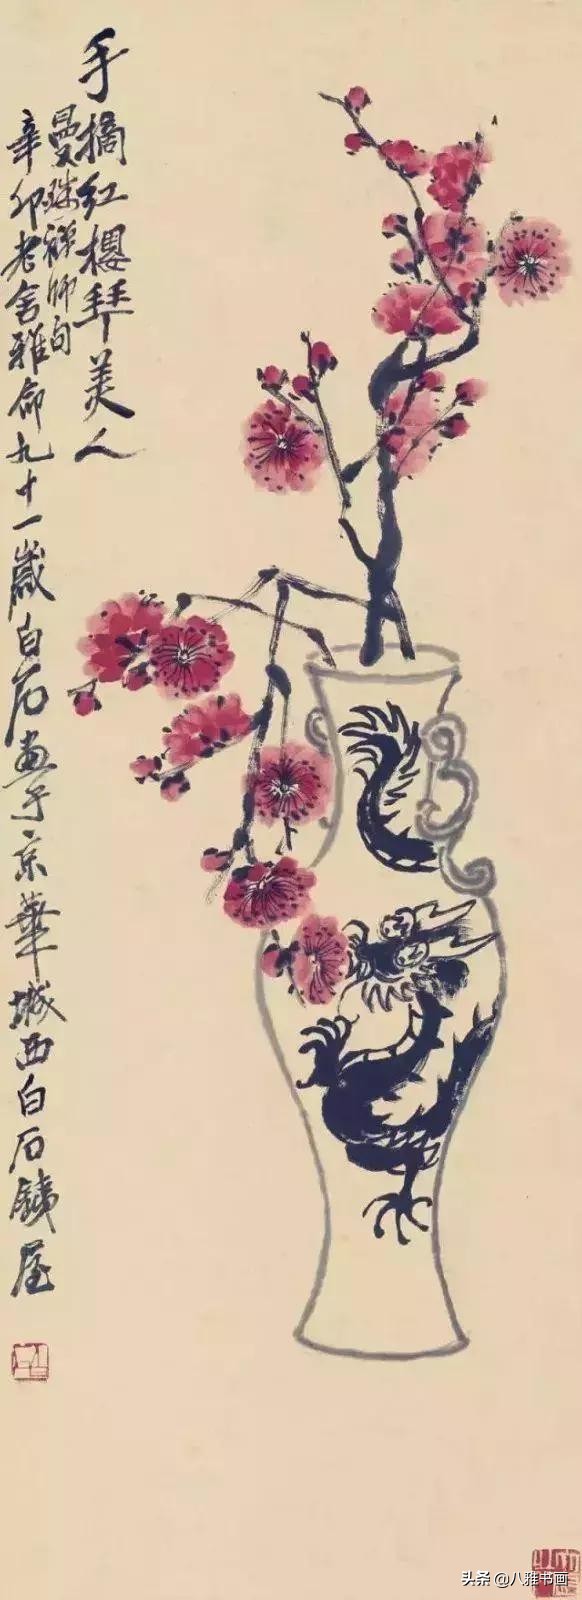 手摘紅櫻拜美人
曼殊禪師句
辛卯老舍雅命九十一歲白石畫于京華城西白石鐵屋
头条 @八雅书画